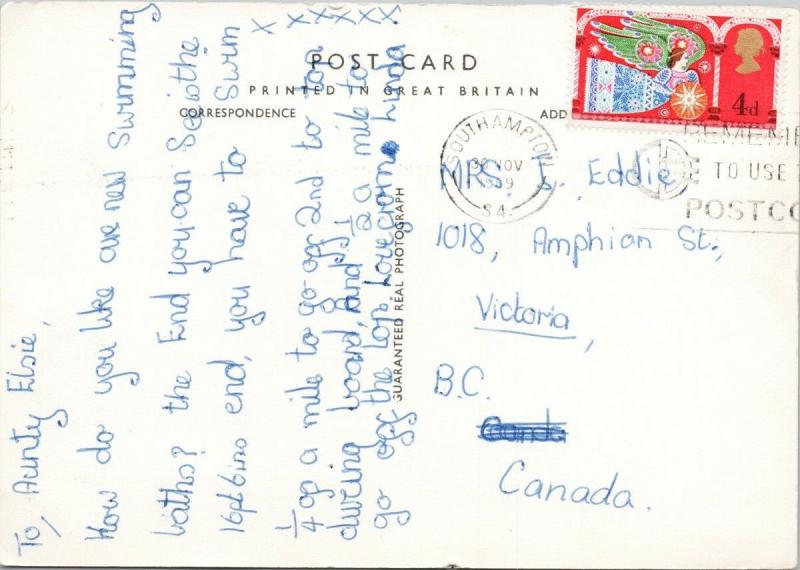 POST CARD
PRINTED IN GREAT BRITAIN
CORRESPONDENCE
ADD
GUARANTEED REAL PHOTOGRAPH
4d
SOUTHAMPTON
NOV
S4.
REMEMBE
TO USE
POSTCO
To, Aunty Elsie,
How do you like are new Swimming
baths? the End you can See is the
16ft 6ins end, you have to Swim
1/4 of a mile to go off 2nd to top
diving board, and 1/2 a mile to
go off the top. Love from Linda
X X X X X X X
MRS. E. Eddie
1018, Amphian St.,
Victoria,
B.C.
Canada.